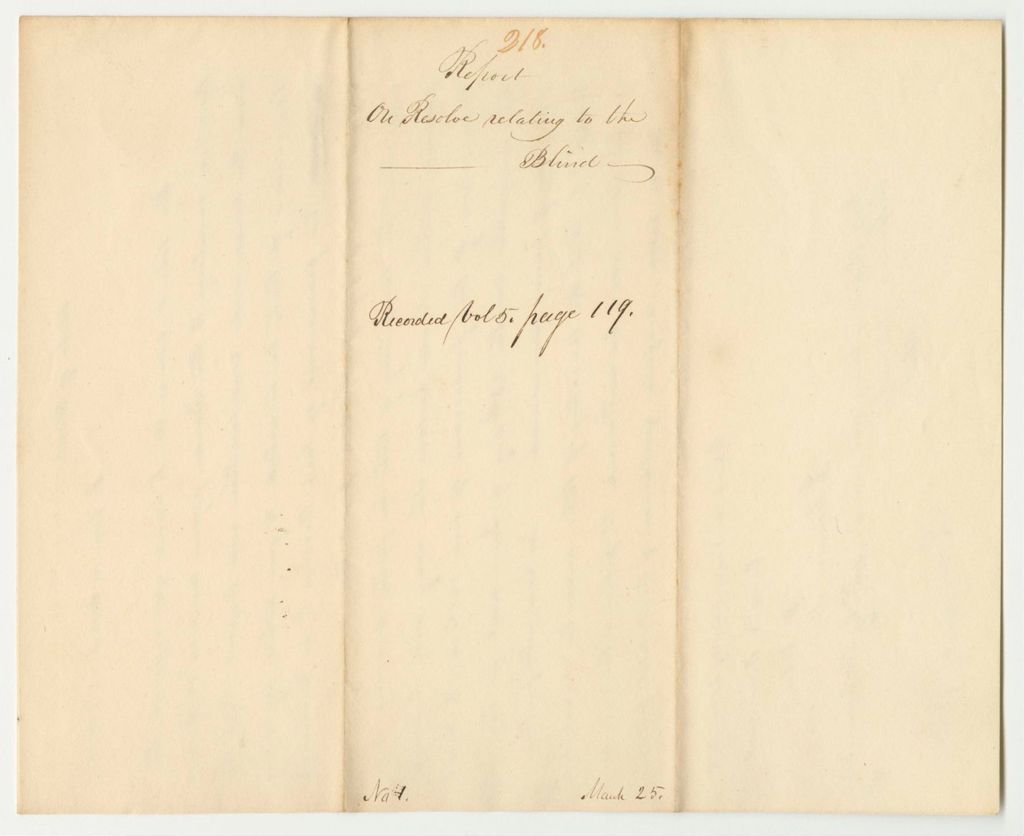 218.
Report
On Resolve relating to the
Blind
Recorded Vol 5. page 119.
No 1.
March 25.